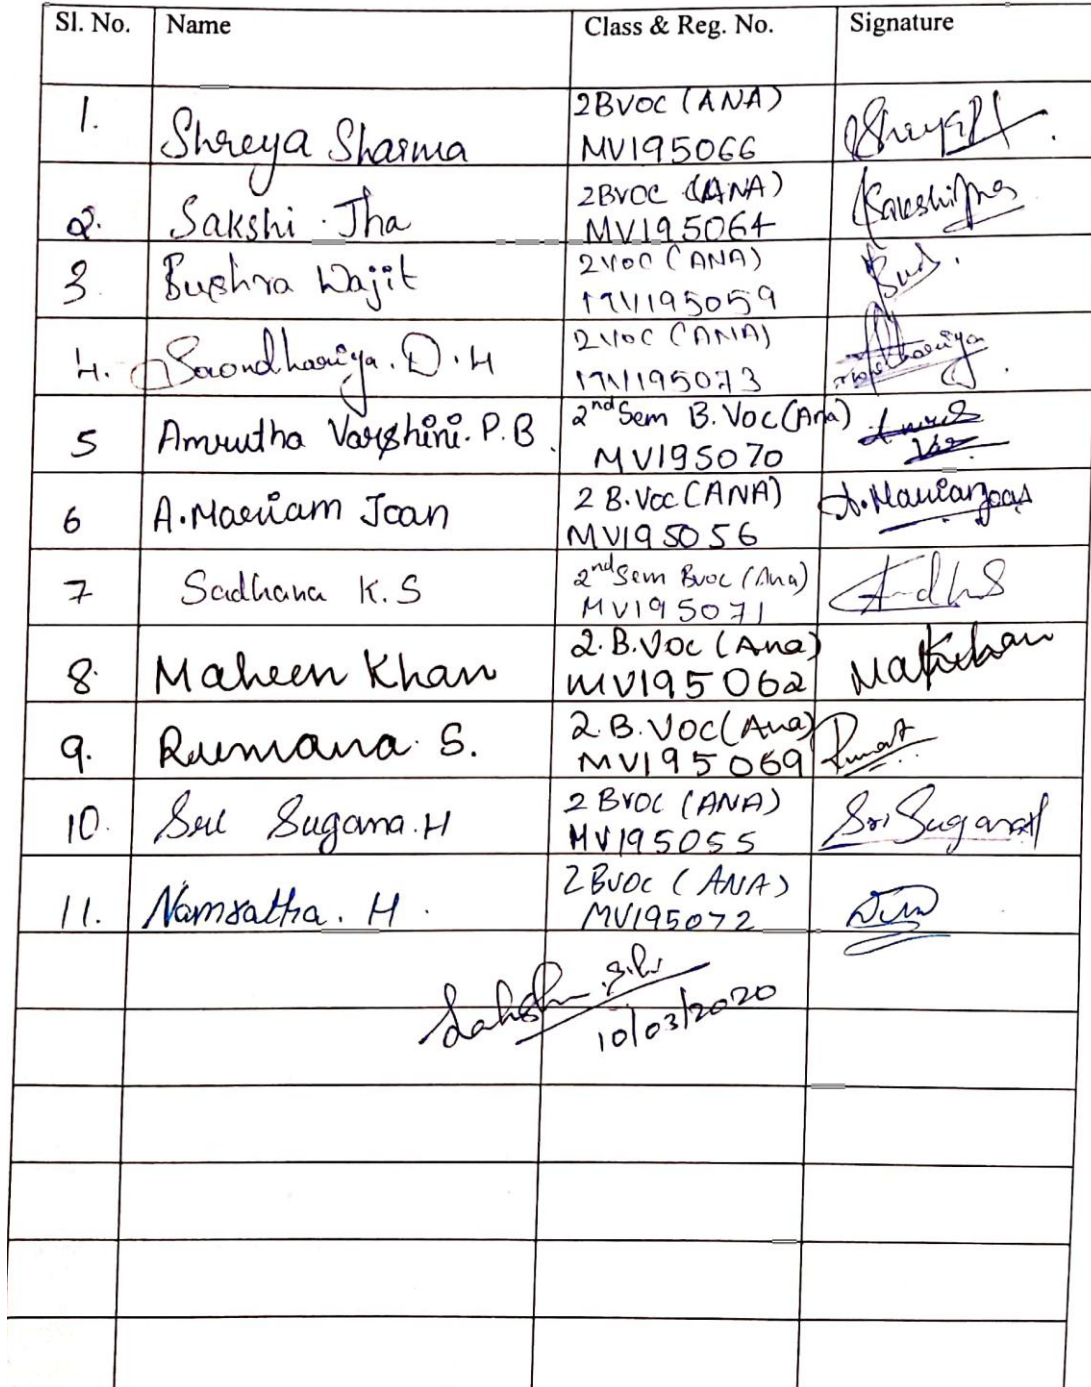 Sl. No. Name Class & Reg. No. Signature
1. Shreya Sharma 2BVOC (ANA)
MV195066
2. Sakshi Jha 2BVOC (ANA)
MV195064
3. Bushra Wajit 2VOC (ANA)
MV195059
4. D.H 2VOC (ANA)
MV195073
5 Amrutha Varshini. P.B. 2nd Sem B.Voc (Ana)
MV195070
6 A. Mariam Joan 2 B.Voc (ANA) A. Mariam Joan
MV195056
7 Sadhana K.S 2nd Sem Bvoc (Ana)
MV195071
8. Maheen Khan 2.B.Voc (Ana)
MV195062
9. Rumana S. 2.B.Voc (Ana)
MV195069
10. Sri Sugana.H 2 BVOC (ANA) Sri Sugana
MV195055
11. Namratha. H. 2BVOC (ANA)
MV195072
10/03/2020